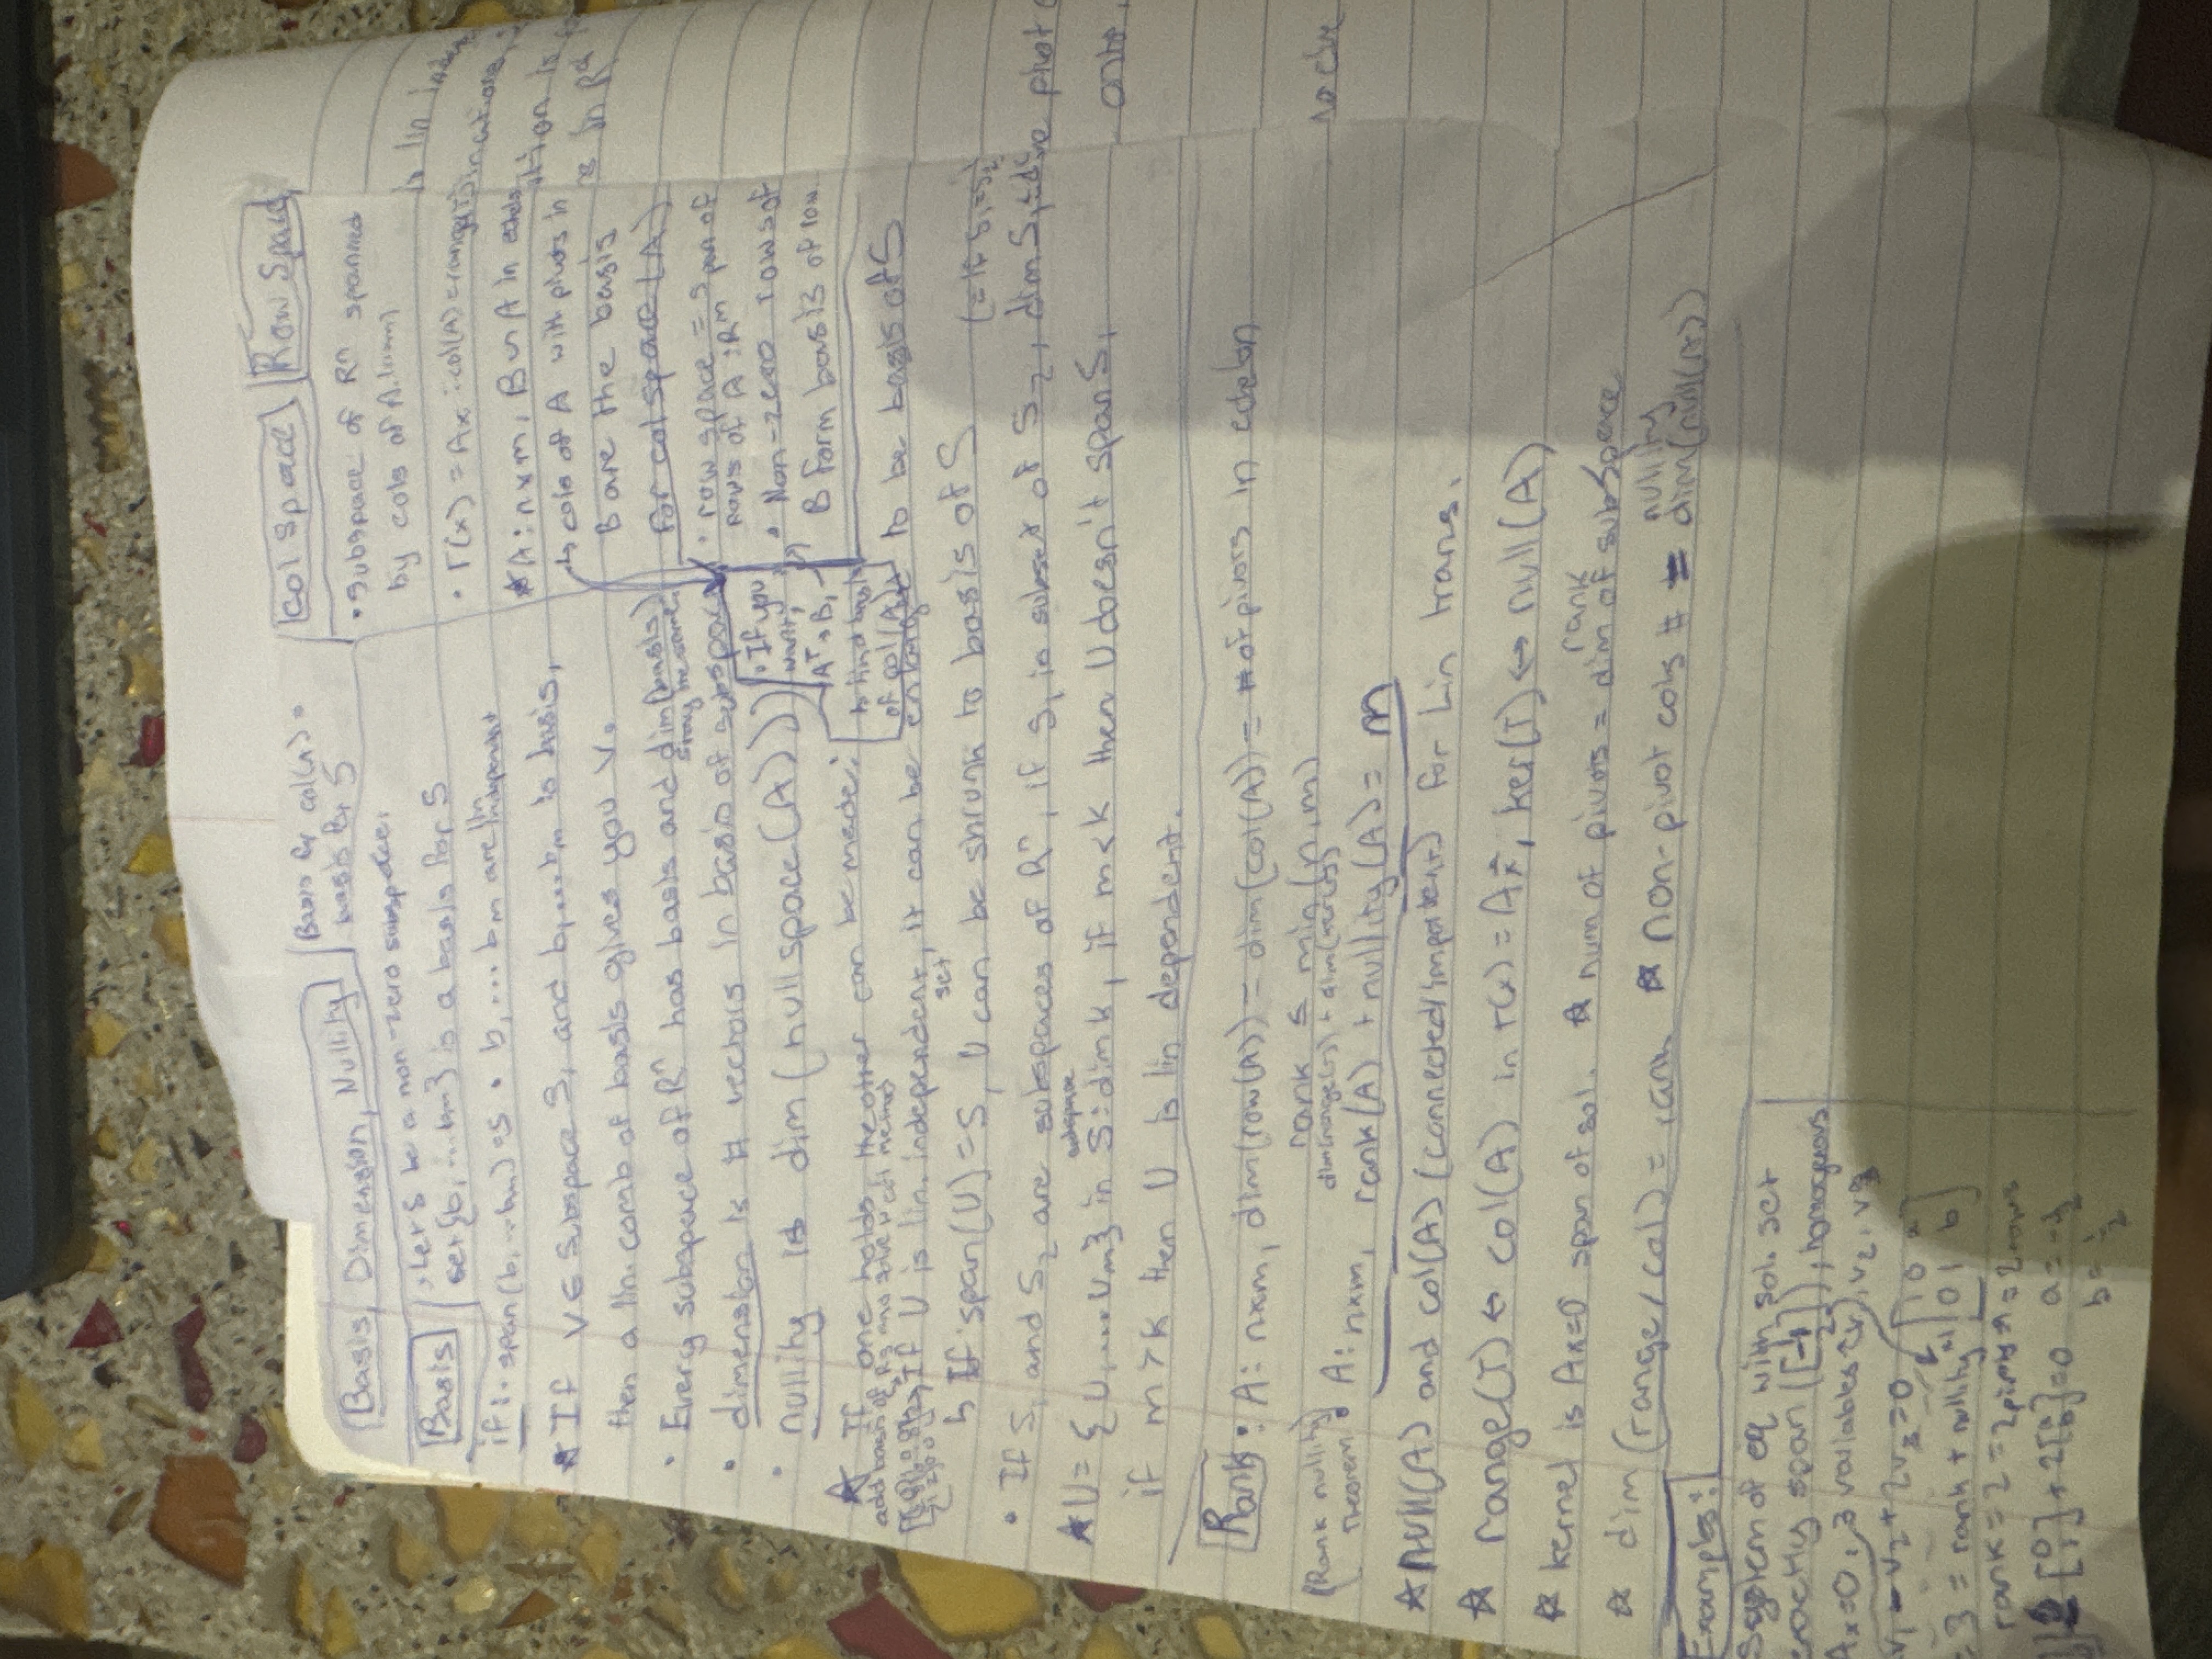 Basis, Dimension, Nullity
Basis for col(A) =
basis for S
Basis
Let S be a non-zero subspace.
set {b, ... bm} is a basis for S
if: · span(b, ... bm) = S · b, ... bm are lin independent
☆ If V ∈ Subspace S, and b, ... bm is basis,
then a lin. comb of basis gives you V.
· Every subspace of Rⁿ has basis and dim(basis)
stay the same.
· dimension is # vectors in basis of subspace
· nullity is dim(nullspace(A))
☆ If one holds, the other can be made:
add basis of R3 and solve w col method
If U is lin. independent, it can be enlarged to be basis of S
↳ If span(U) = S, U set can be shrunk to basis of S
(= if S₁=S₂)
· If S₁ and S₂ are subspaces of Rⁿ, if S₁ is subset of S₂, dim S₁ ≤
☆ U = {U, ... Um} in subspace S: dim k, if m < k then U doesn't span S,
if m > k then U is lin dependent.
Col Space
Row Space
· Subspace of Rⁿ spanned
by cols of A. (nxm)
· T(x) = Ax : col(A) = range
☆ A: nxm, B ~ A in
↳ cols of A with pivots in
B are the basis
for colspace(A)
· row space = span of
rows of A : Rᵐ
· Non-zero rows of
B form basis of row.
· If you
want,
Aᵀ → B,
to find basis
of col(A)
Rank · A: nxm, dim(row(A)) = dim(col(A)) = # of pivots in echelon
rank ≤ min(n,m)
(Rank nullity
Theorem
dim(range(T)) + dim(ker(T))
· A: nxm, rank(A) + nullity(A) = m
☆ null(A) and col(A) (connected/important) for Lin trans.
☆ range(T) ↔ col(A) in T(x) = Ax⃗, ker(T) ↔ null(A)
☆ kernel is Ax=0 span of sol. ☆ num of pivots = rank dim of subspace
☆ dim(range/col) = rank ☆ non-pivot cols # = nullity dim(null(A))
Examples:
System of eq with sol. set
exactly span([1 -1 2]), homogeneous
Ax=0, 3 variables: v₁, v₂, v3
v₁ - v₂ + 2v₃ = 0
[1 0 a
0 1 b]
= 3 = rank + nullity
rank = 2 = 2 pivots = 2 rows
[0 1] + 2[a b] = 0
a = -½
b = ½
is lin
in R
pivot
onto,